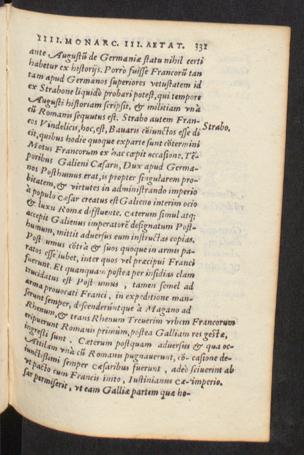 IIII. MONARC. III. AETAT. 131
ante Augustū de Germaniæ statu nihil certi
habetur ex historijs. Porrò fuisse Francorū tan
tam apud Germanos superiores vetustatem id
ex Strabone liquidò probari potest, qui tempore
Augusti historiam scripsit, & militiam vnà
cū Romanis sequutus est. Strabo autem Fran-
cos Vindelicis, hoc est, Bauaris cōiunctos esse di
Strabo.
cit, quibus hodie quoque ex parte sunt cōtermini
Motus Francorum ex hac cœpit occasione. Tē-
poribus Galieni Cæsaru, Dux apud Germa-
nos Posthumus erat, is propter singularem pro-
bitatem, & virtutes in administrando imperio
à populo Cæsar creatus est Galieno interim ocio
& luxu Romæ diffluente. Cæterum simul atq;
accepit Galienus imperatorē designatum Post-
humum, mittit aduersus eum instructas copias.
Posthumus cōtrà & suos quoque in armis pa-
ratos esse iubet, inter quos vel præcipui Franci
fuerunt. Et quamquam postea per insidias clam
trucidatus est Posthumus, tamen semel ad
arma prouocati Franci, in expeditione man-
serunt semper, descenderúntque ad Magunū
Rhenum, & trans Rhenum Treuerim vrbem
Francorum
eripuerunt Romanis primùm, postea Galliam
res gestæ,
ingressi sunt. Cæterum postquam aduersus & qua oc-
Attilam vnà cū Romanis pugnauerunt, cō-
casione de-
iunctissimi semper Cæsaribus fuerunt, adeò
sciuerint ab
vt pacto cum Francis inito, Iustinianus Cæ-
imperio.
sar permiserit, vt eam Galliæ partem quæ ho-